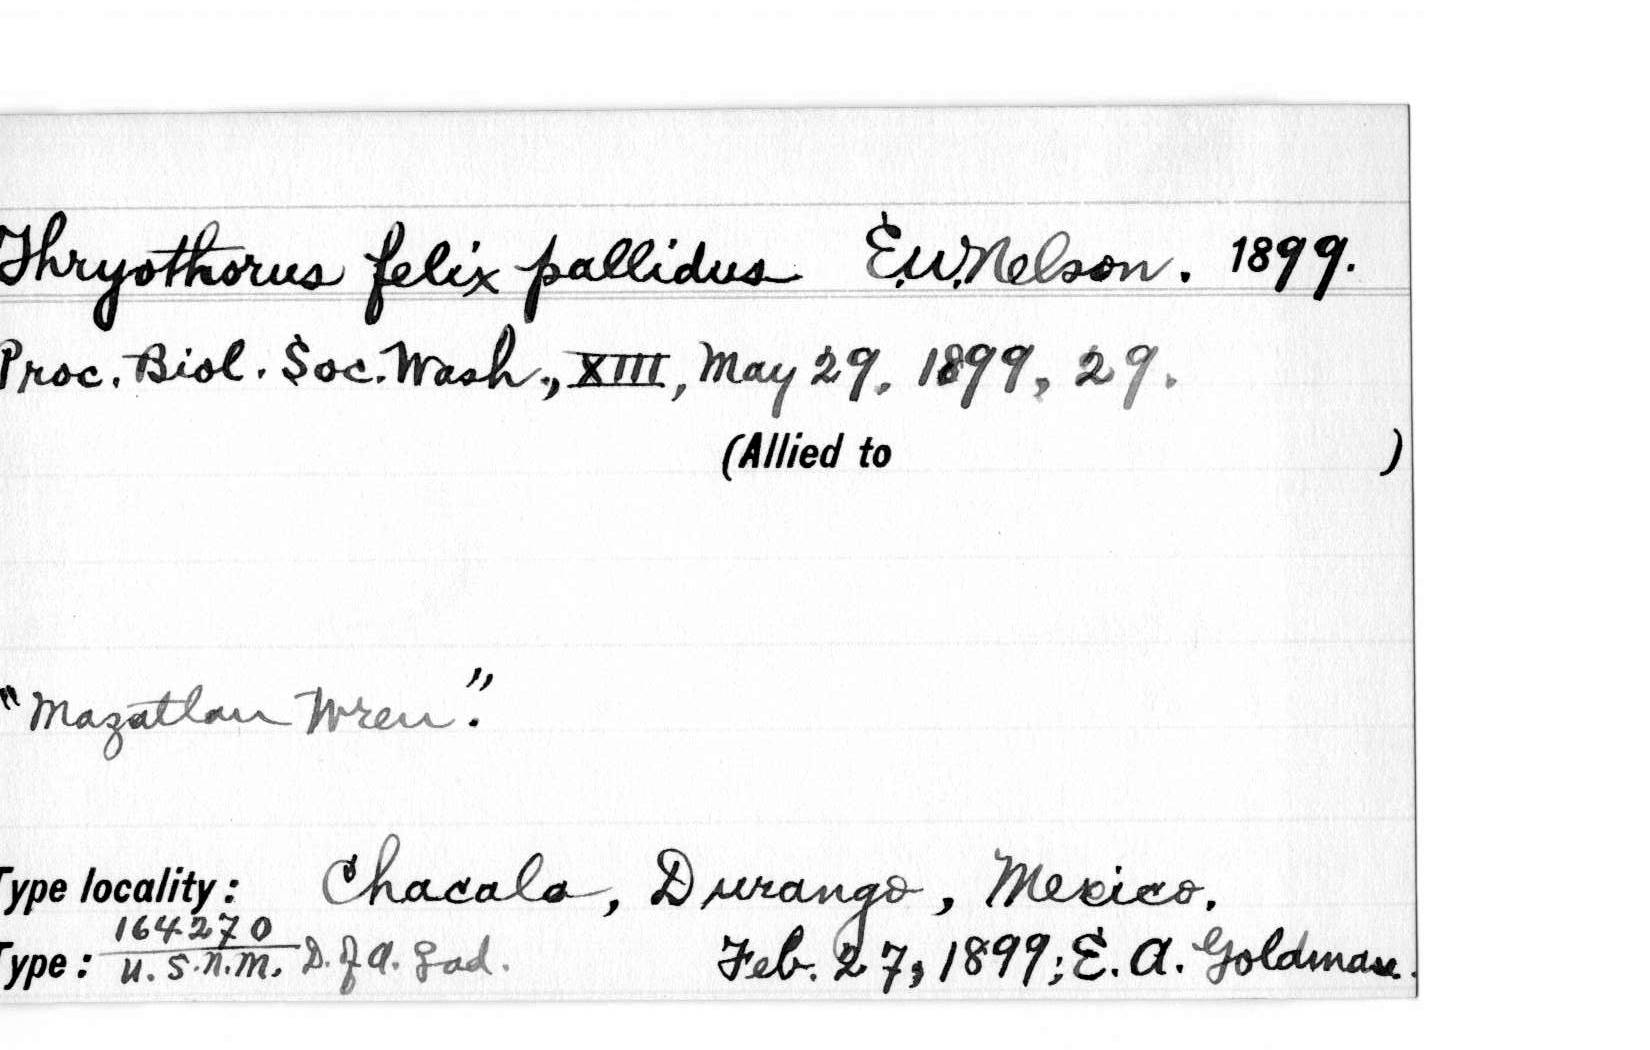 Thryothorus felix pallidus E.W. Nelson. 1899.
Proc. Biol. Soc. Wash., XIII, May 29, 1899, 29.
(Allied to )
"Mazatlan Wren."
Type locality: Chacala, Durango, Mexico.
164270
Type: U.S.N.M. D. ad. Feb. 27, 1899; E. A. Goldman.